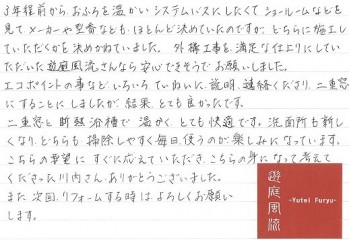 3年程前から、おふろを温かいシステムバスにしたくてショールームなどを
見てメーカーや型番なども、ほとんど決めていたのですが、どちらに施工し
ていただくかを決めかねていました。外構工事を、満足な仕上りにしてい
ただいた遊庭風流さんなら安心できそうでお願いしました。
エコポイントの事など、いろいろていねいに、説明、連絡くださり、二重窓
にすることにしましたが、結果、とても良かったです。
二重窓と断熱浴槽で温かく、とても快適です。洗面所も新し
くなり、どちらも掃除しやすく毎日、使うのが楽しみになっています。
こちらの要望にすぐに応えていただき、こちらの身になって考えて
くださった川内さん、ありがとうございました。
また次回、リフォームする時は、よろしくお願い
します。
遊庭風流
-Yutei Furyu-